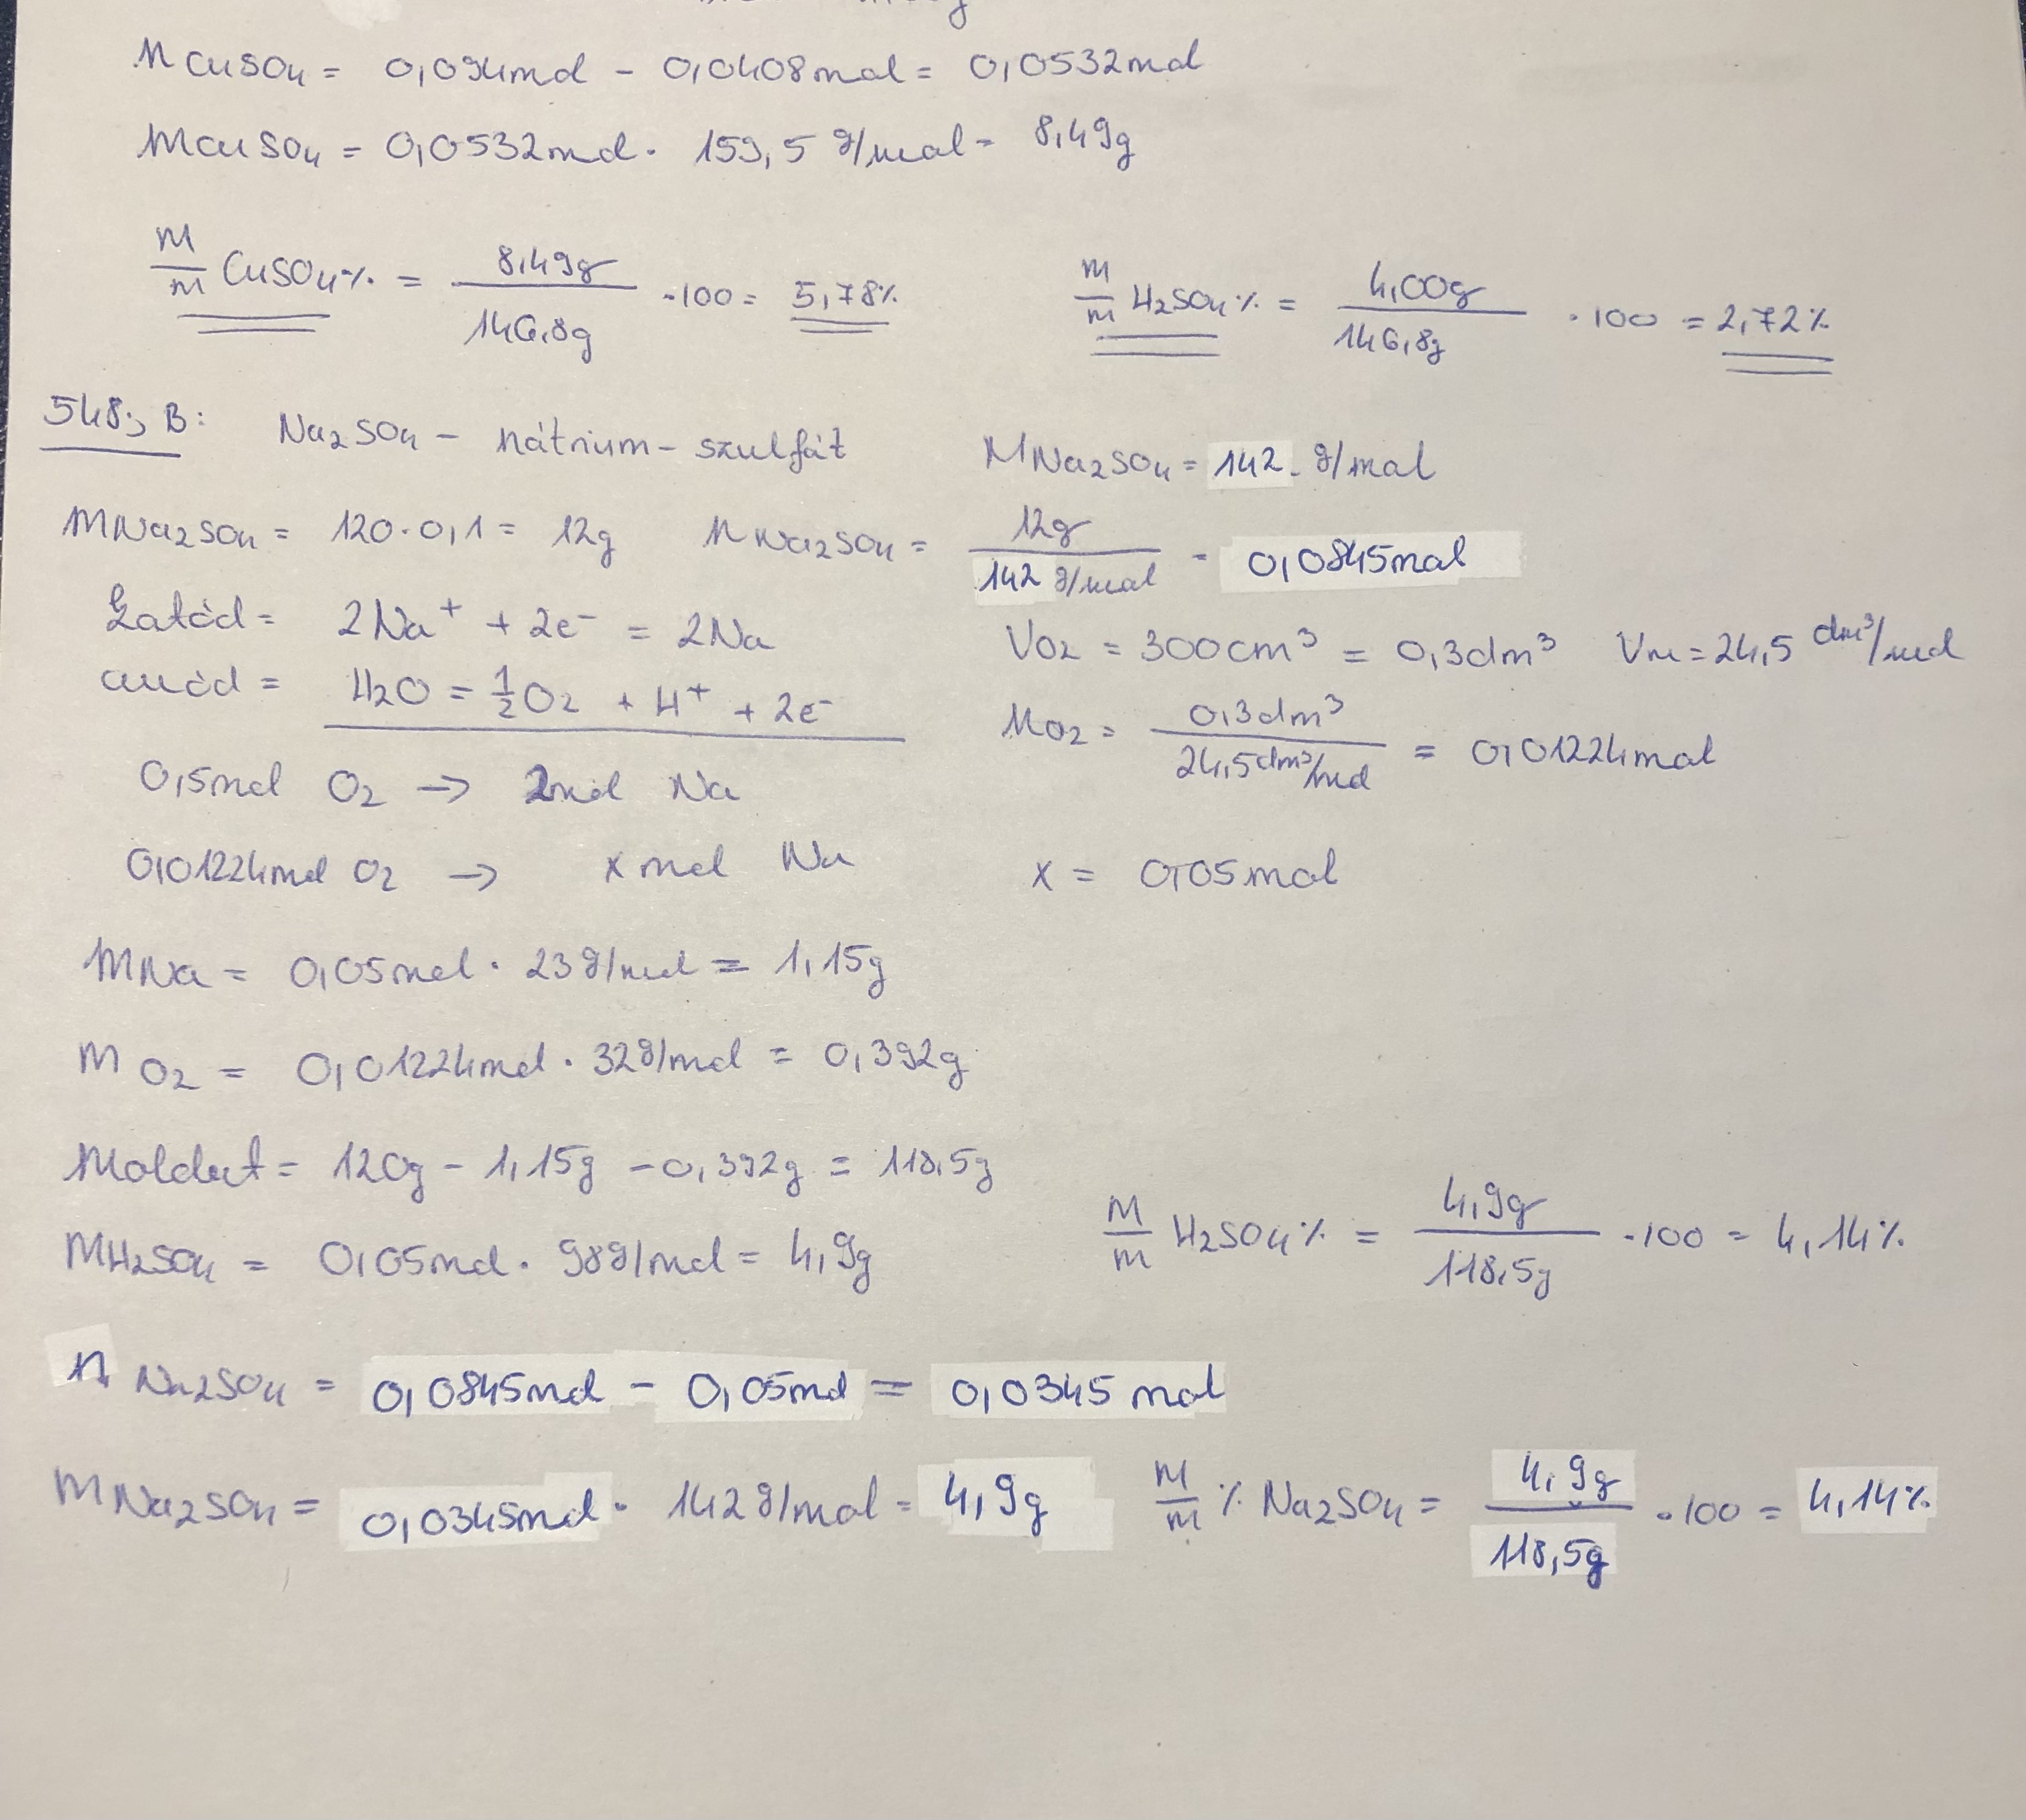 nCuSO4 = 0,094mol - 0,0408mol = 0,0532mol
mCuSO4 = 0,0532mol · 159,5 g/mol = 8,49g
m/m CuSO4% = 8,49g / 146,8g · 100 = 5,78%
m/m H2SO4% = 4,00g / 146,8g · 100 = 2,72%
548; B: Na2SO4 - nátrium-szulfát
MNa2SO4 = 142 g/mol
mNa2SO4 = 120·0,1 = 12g
nNa2SO4 = 12g / 142 g/mol = 0,0845mol
katód = 2Na+ + 2e- = 2Na
VO2 = 300cm3 = 0,3dm3 Vm = 24,5 dm3/mol
anód = H2O = 1/2O2 + H+ + 2e-
nO2 = 0,3dm3 / 24,5dm3/mol = 0,01224mol
0,5mol O2 -> 2mol Na
0,01224mol O2 -> x mol Na
x = 0,05mol
mNa = 0,05mol · 23g/mol = 1,15g
mO2 = 0,01224mol · 32g/mol = 0,392g
moldat = 120g - 1,15g - 0,392g = 118,5g
mH2SO4 = 0,05mol · 98g/mol = 4,9g
m/m H2SO4% = 4,9g / 118,5g · 100 = 4,14%
n Na2SO4 = 0,0845mol - 0,05mol = 0,0345 mol
mNa2SO4 = 0,0345mol · 142g/mol = 4,9g
m/m % Na2SO4 = 4,9g / 118,5g · 100 = 4,14%